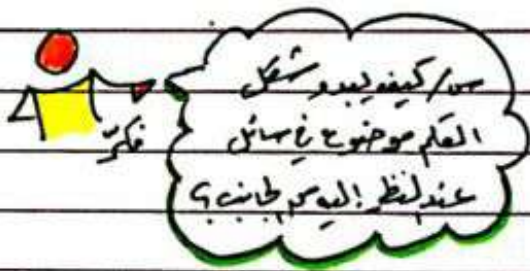 س/ كيف يبدو شكل
القلم موضوع في سائل
عند النظر إليه من الجانب؟
فكر